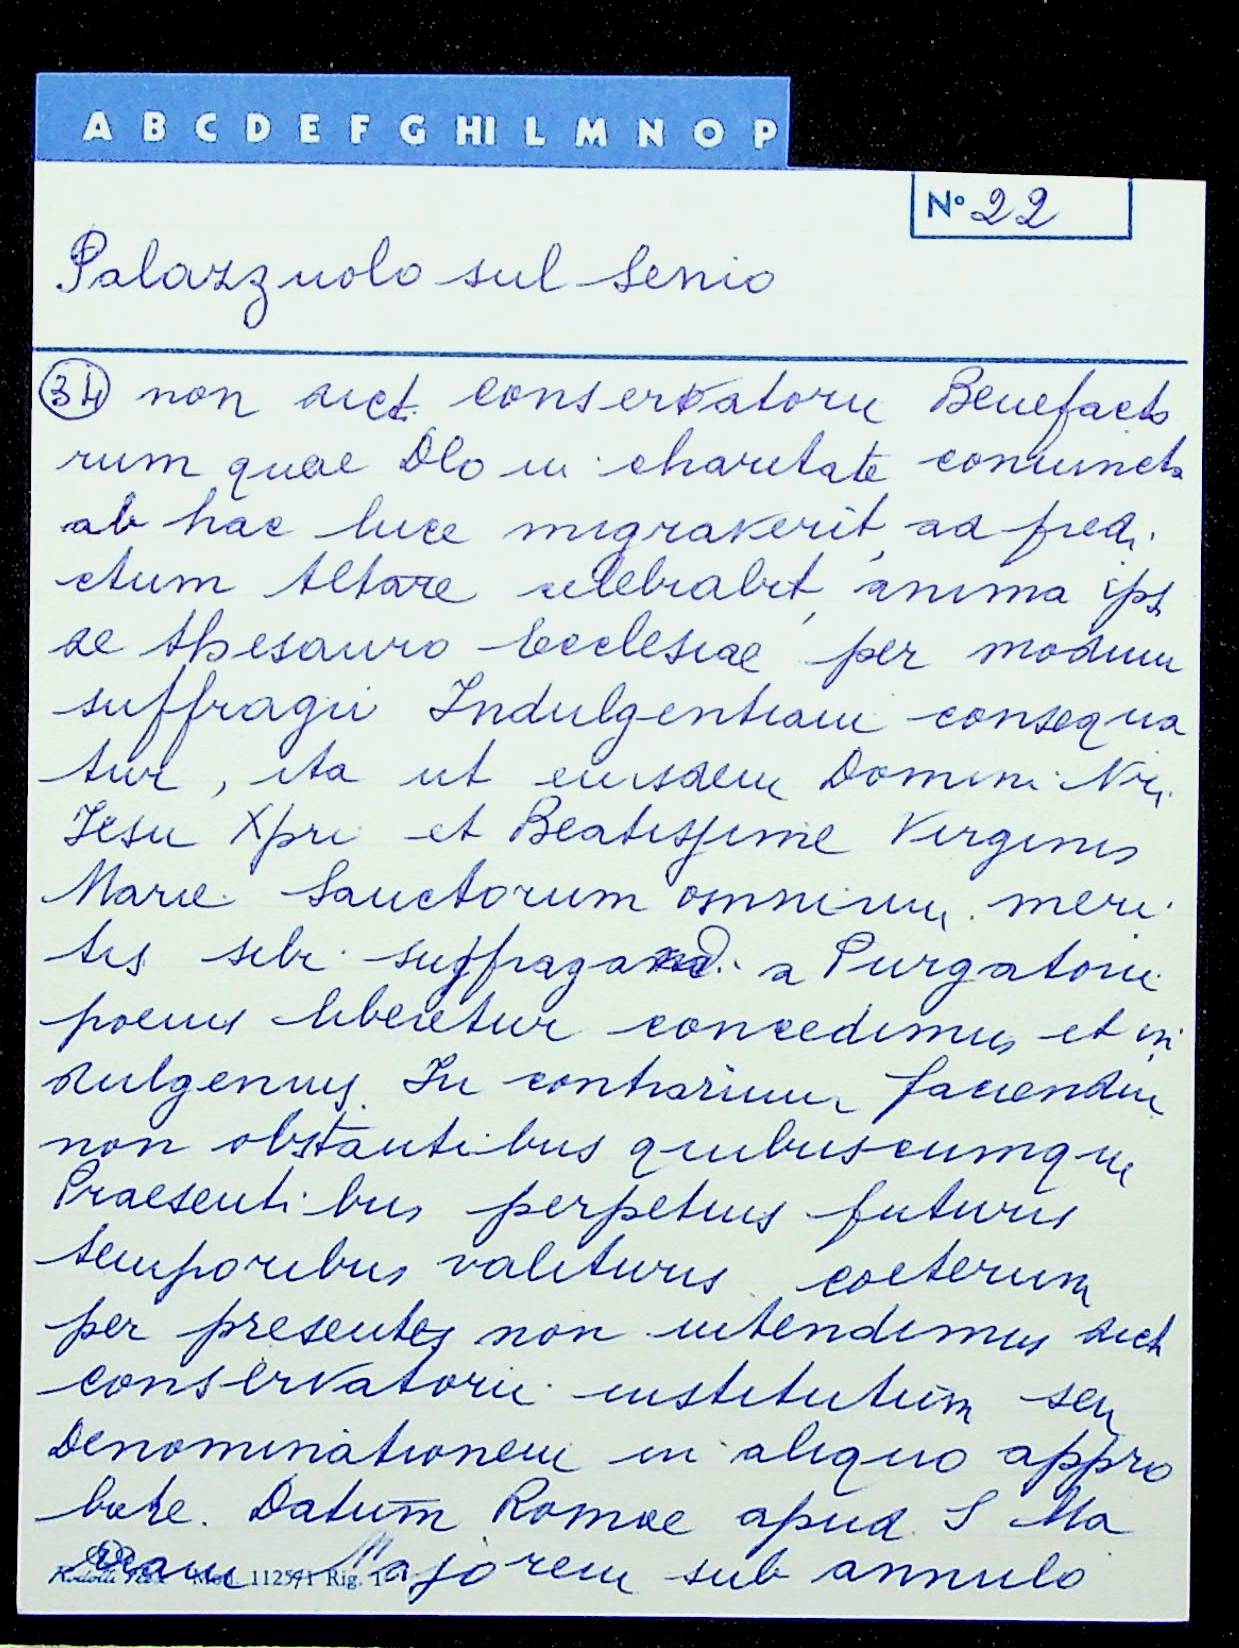 A B C D E F G HI L M N O P
N° 22
Palazzuolo sul Senio
34 non dict. Conservatorii Benefacto
rum quae Dlo in charitate coniuncta
ab hac luce migraverit, ad predi
ctum Altare celebrabit, anima ips
de thesauro Ecclesiae per modum
suffragii Indulgentiam consequa
tur, ita ut eiusdem Domini Nri
Jesu Xpri et Beatissime Virginis
Marie Sanctorum omnium meri
tis sibi suffragand. a Purgatorii
poenis liberetur concedimus et in
dulgemus. In contrarium faciendum
non obstantibus quibuscumque
Praesentibus perpetuis futuris
temporibus valituris coeterum
per presentes non intendimus dict
conservatorii institutum seu
Denominationem in aliquo appro
bare. Datum Romae apud S Ma
riam Majorem sub annulo
Mod. 112571 Rig. 1